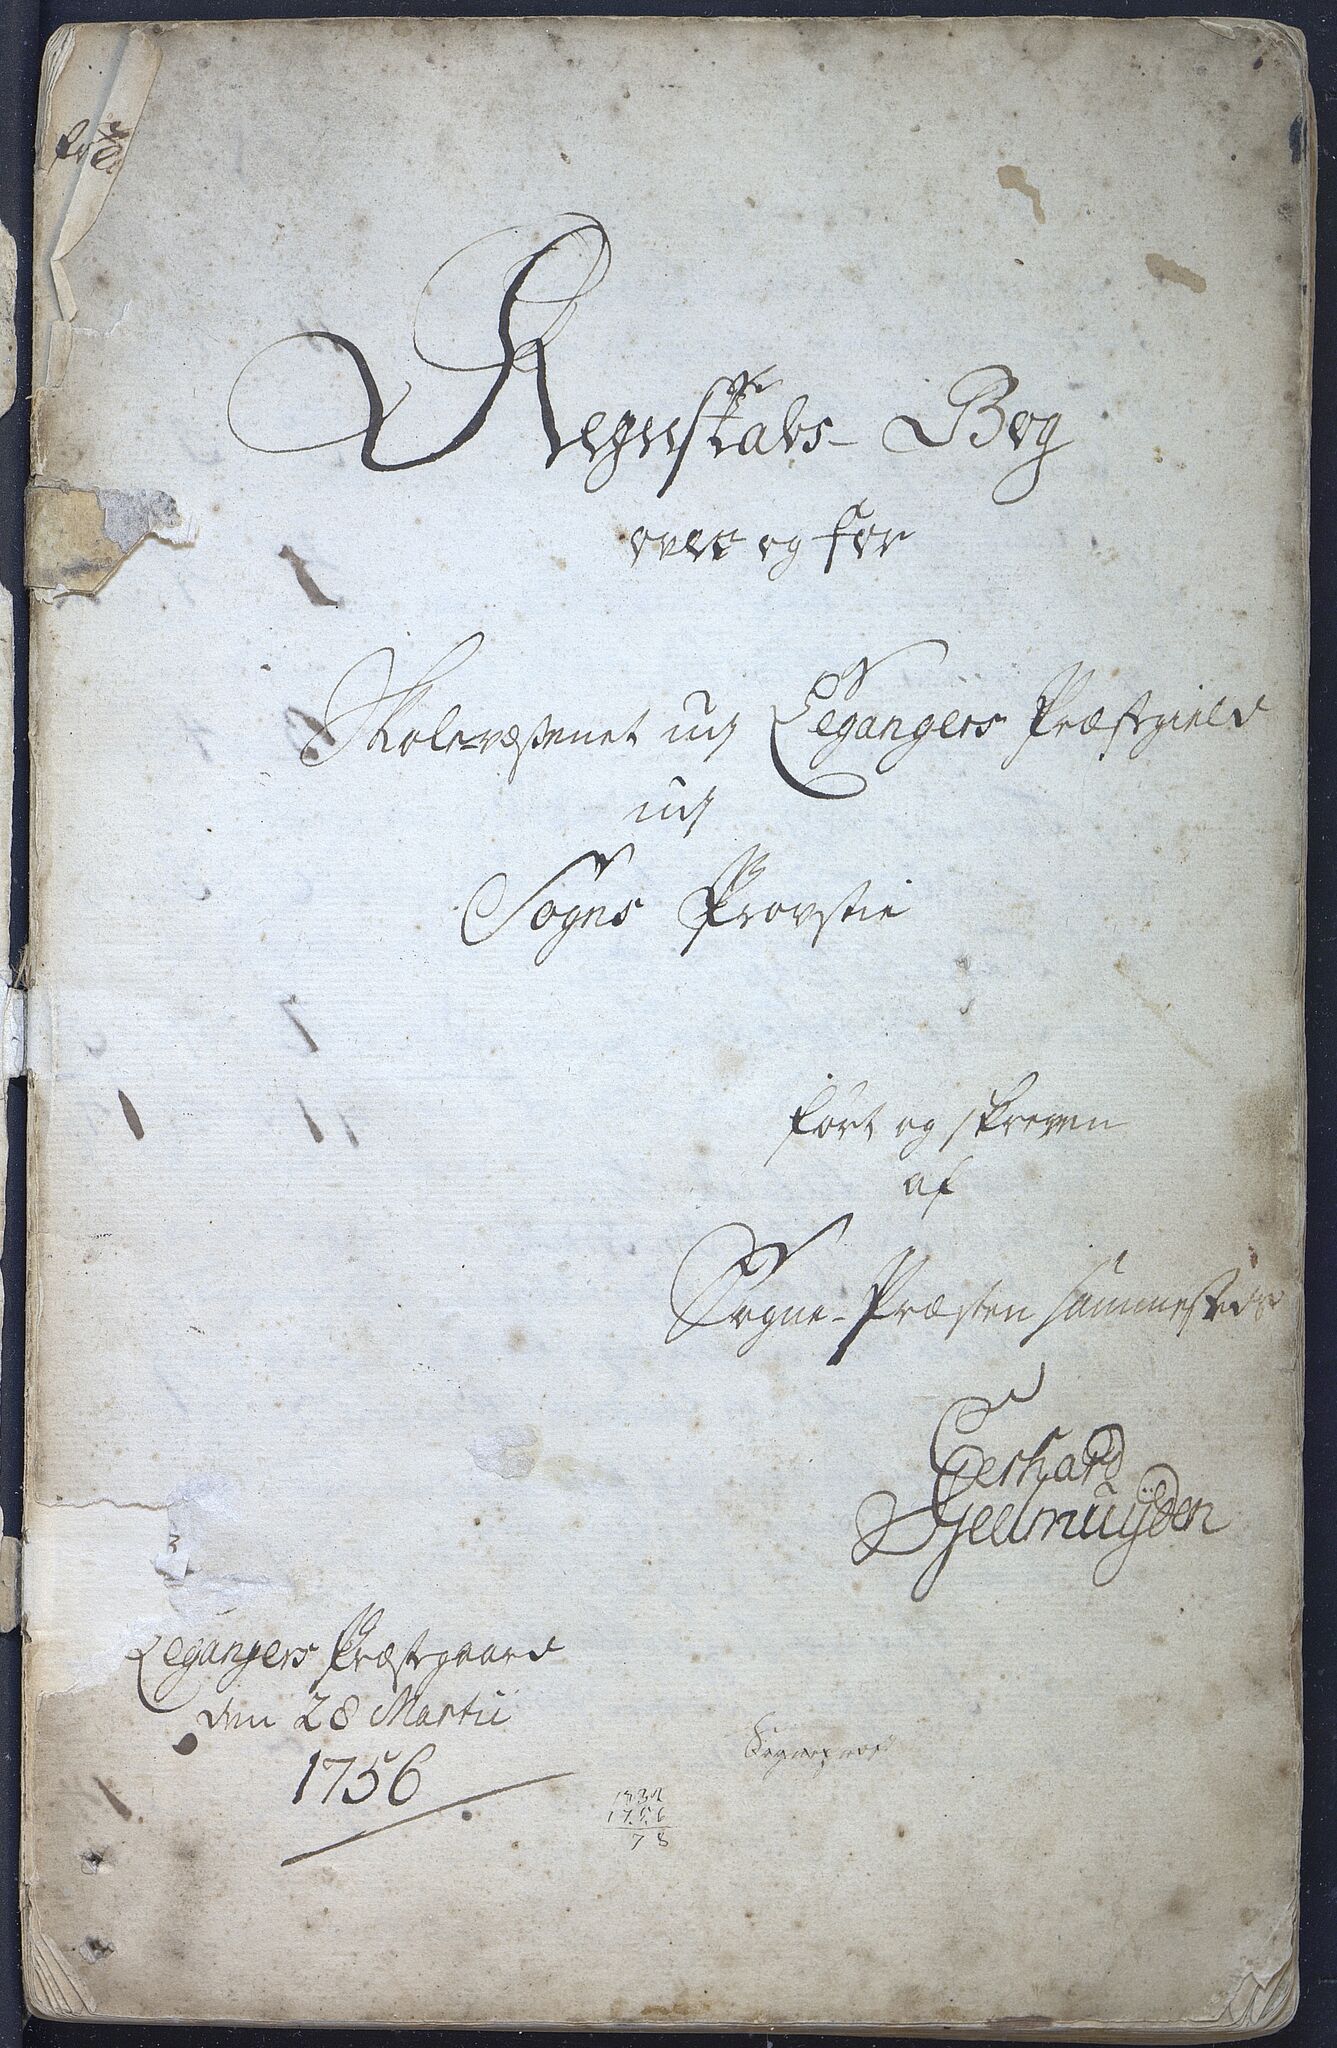 Regnskabs- Bog
over og for
Skolevæßenet udj Leganger's Præstgield
udj
Sogns Provstie
ført og skreven
af
Sogne-Præsten sammesteds
Gerhard
Gjeelmuÿden
Legangers Præstegaard
den 28 Martii
1756
1834
1756
78